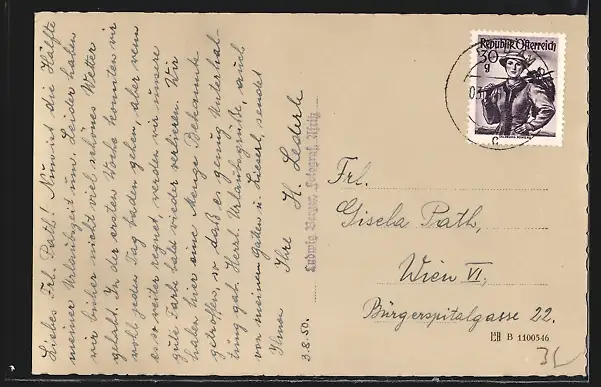 Liebes Frl. Path! Nun ist die Hälfte
meiner Urlaubszeit um. Leider haben
wir bisher nicht viel schönes Wetter
gehabt. In der ersten Woche konnten wir
wohl jeden Tag baden gehen, aber wenn
es so weiter regnet, werden wir unsere
gute Farbe bald wieder verlieren. Wir
haben hier eine Menge Bekannte
getroffen, so daß es genug Unterhal-
tung gab. Herzl. Urlaubsgrüße, auch
von meinem Gatten u. Lieserl, sendet
Ihnen Ihre H. Lederle
3.8.50.
Ludwig Berger, Fotograf,
Republik Österreich
30
g
Frl.
Gisela Path,
Wien VI,
Bürgerspitalgasse 22.
B 1100546